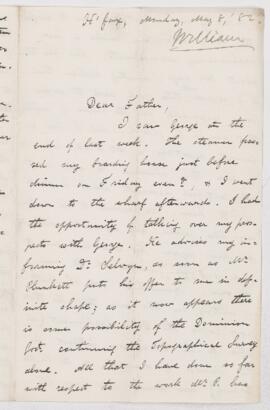 H'fax, Monday, May 8, '82.
William
Dear Father,
I saw George at the
end of last week. The steamer pas-
sed my boarding house just before
dinner on Friday even'g, & I went
down to the wharf afterwards. I had
the opportunity of talking over my pros-
pects with George. He advises my in-
forming Dr. Selwyn, as soon as Mr.
Plunkett puts his offer to me in def-
inite shape; as it now appears there
is some possibility of the Dominion
Gov't continuing the Topographical Survey
alone. All that I have done so far
with respect to the work Mr. P. has